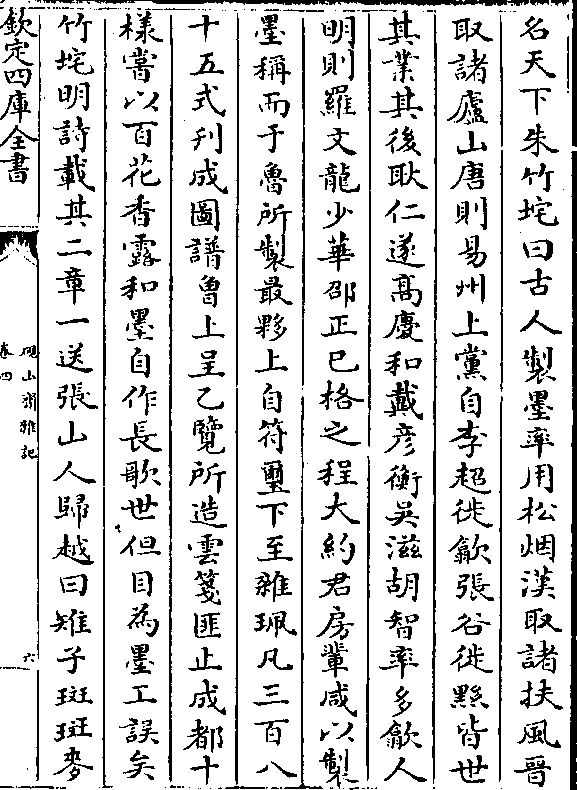 名天下朱竹垞曰古人製墨率用松烟漢取諸扶風晉
取諸廬山唐則易州上黨自李超徙歙張谷徙黟皆世
其業其後耿仁遂高慶和戴彦衡吳滋胡智率多歙人
明則羅文龍少華邵正已格之程大約君房輩咸以製
墨稱而于魯所製最夥上自符璽下至雜珮凡三百八
十五式刋成圖譜魯上呈乙覽所造雲箋匪止成都十
樣嘗以百花香露和墨自作長歌世但目為墨工誤矣
竹垞明詩載其二章一送張山人歸越曰雉子斑斑麥
欽定四庫全書
硯山齋雜記
卷四
六